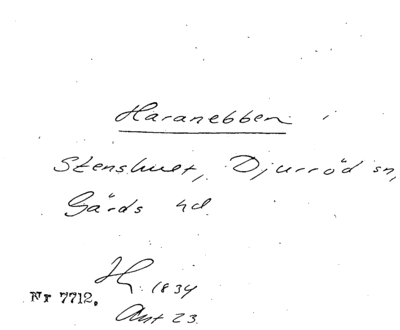 Haranebben i
Stenshult, Djurröd sn,
Gärds hd.
H. 1834
Nr 7712.
Akt 23.